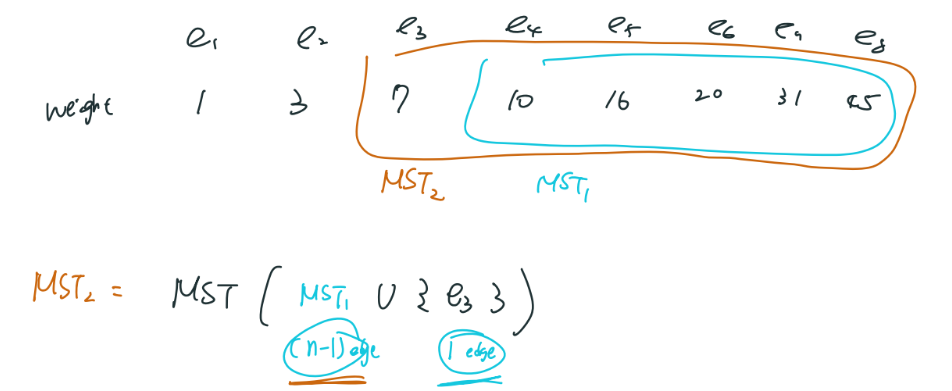 e₁ e₂ e₃ e₄ e₅ e₆ e₉ e₈
weight 1 3 7 10 16 20 31 45
MST₂ MST₁
MST₂ = MST ( MST₁ ∪ { e₃ } )
(n-1) edge 1 edge